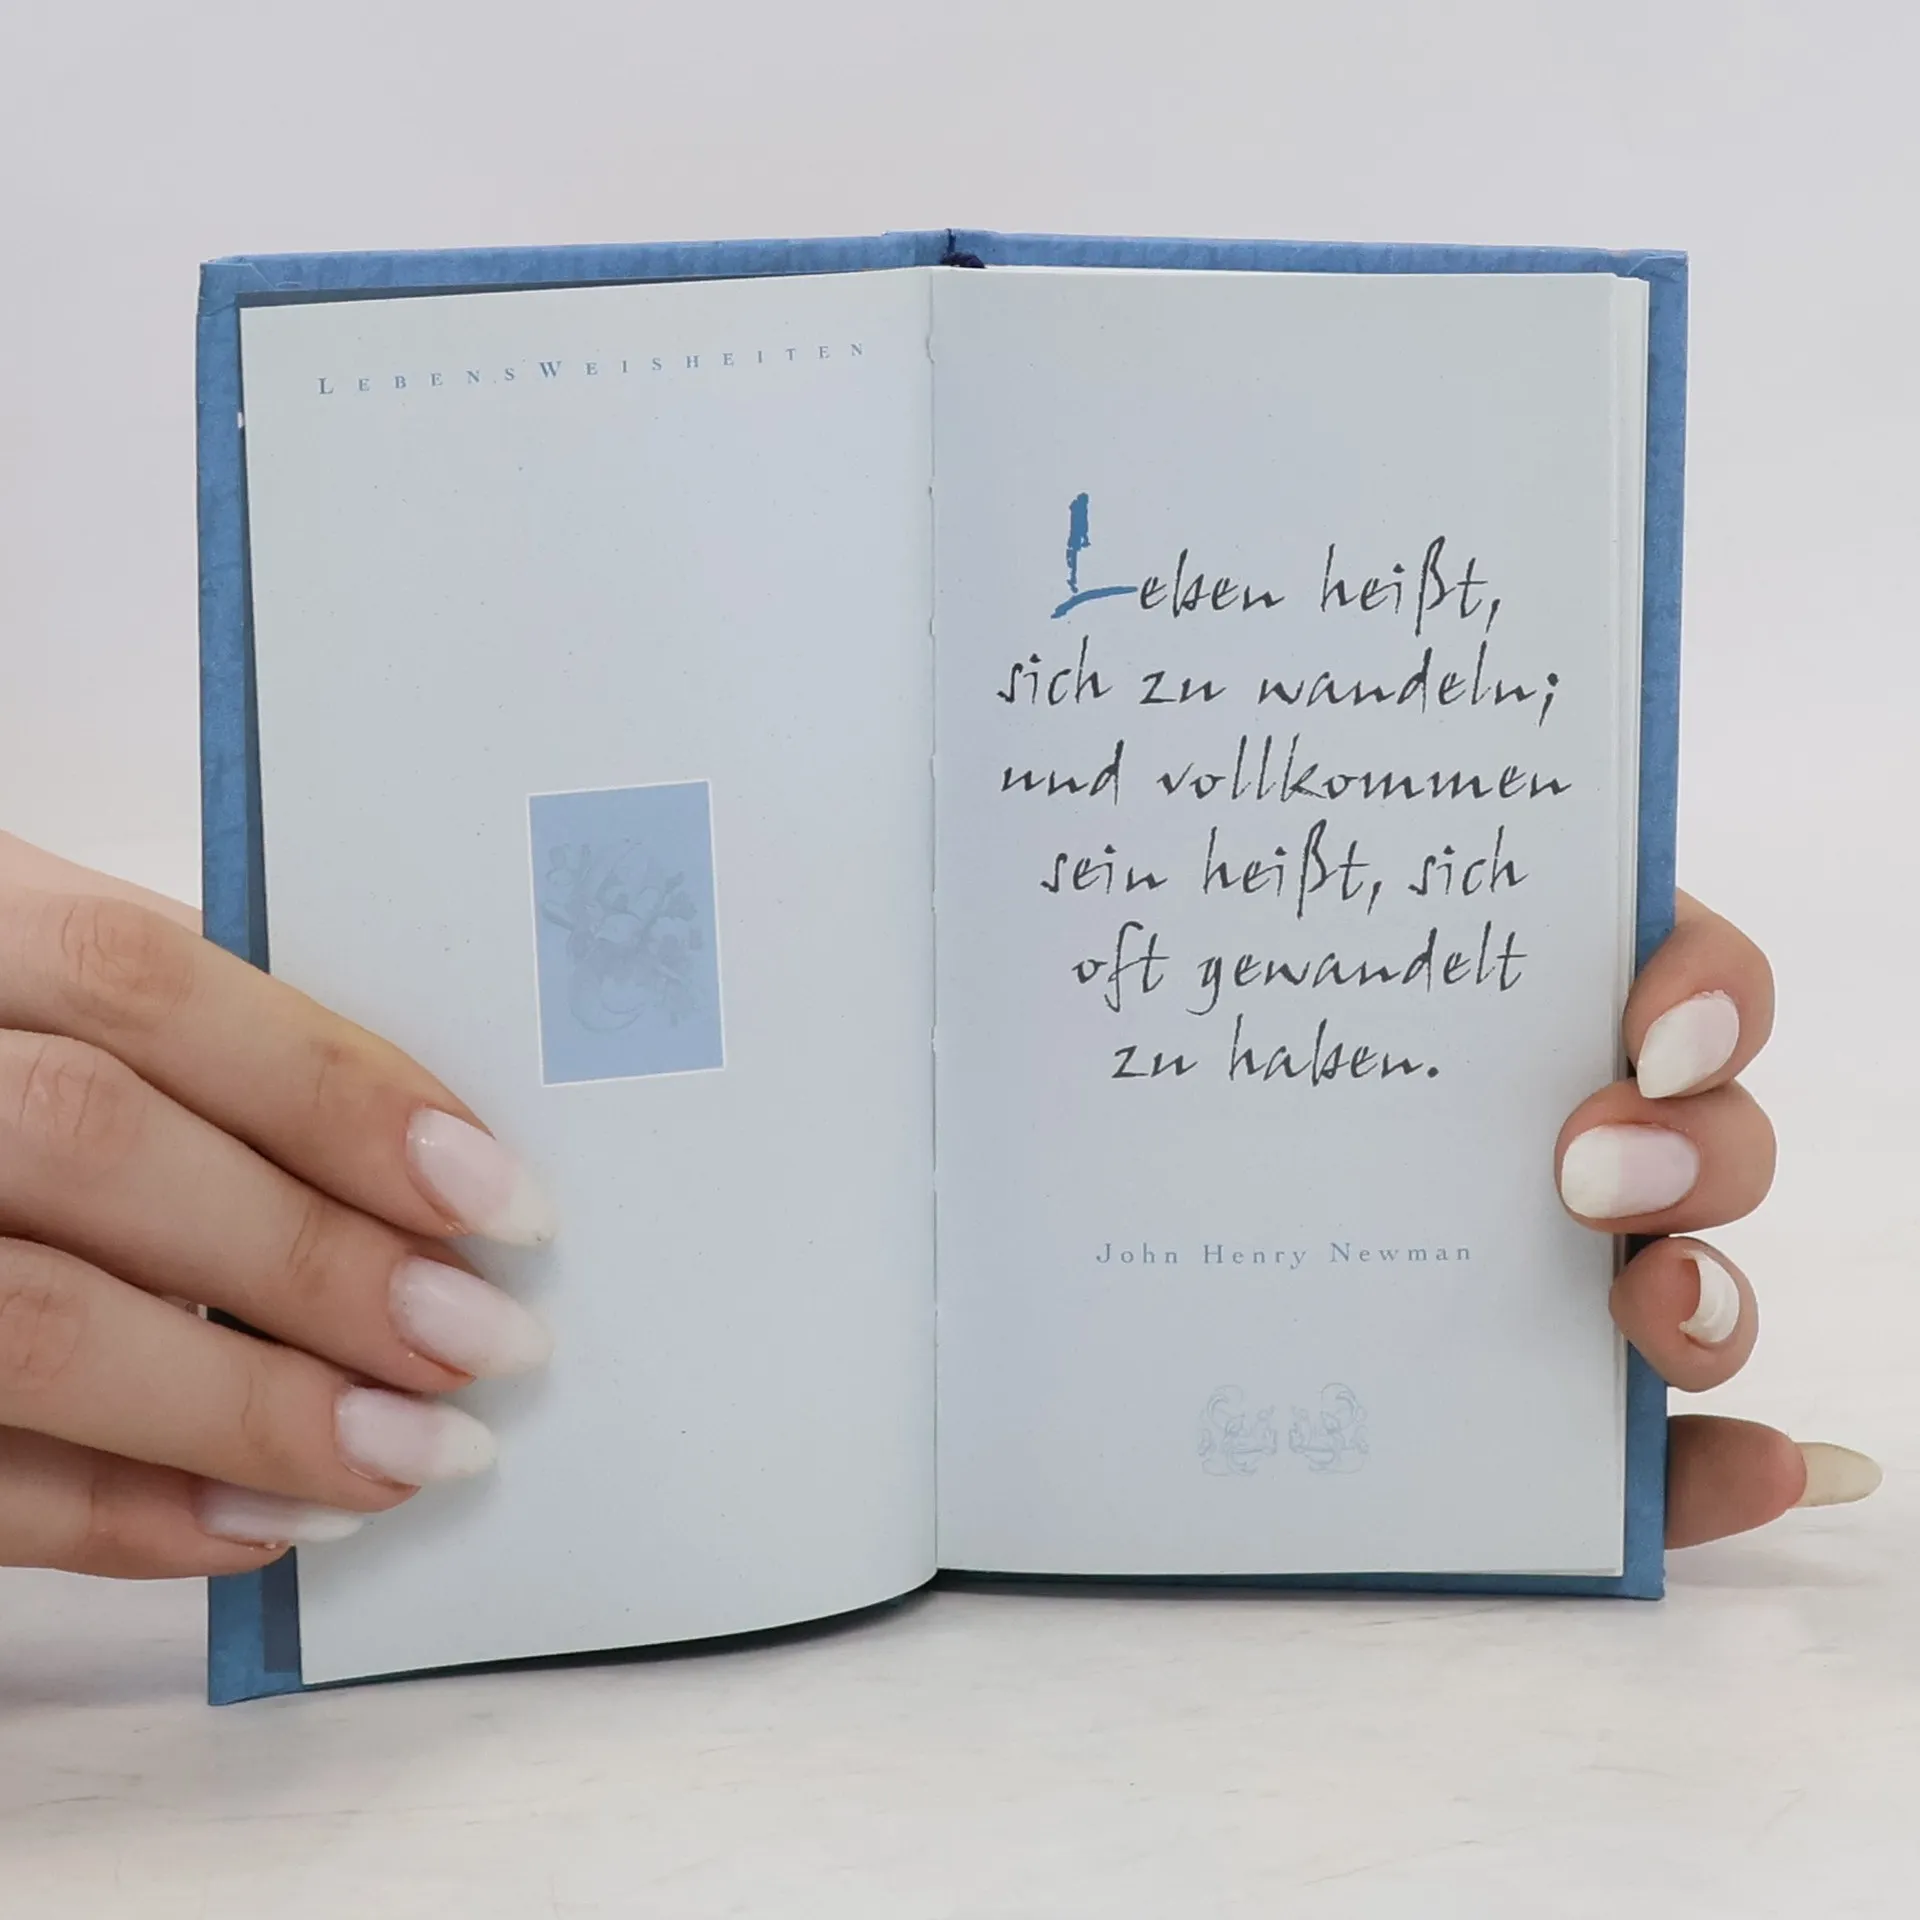 LEBENSWEISHEITEN
Leben heißt,
sich zu wandeln;
und vollkommen
sein heißt, sich
oft gewandelt
zu haben.
John Henry Newman